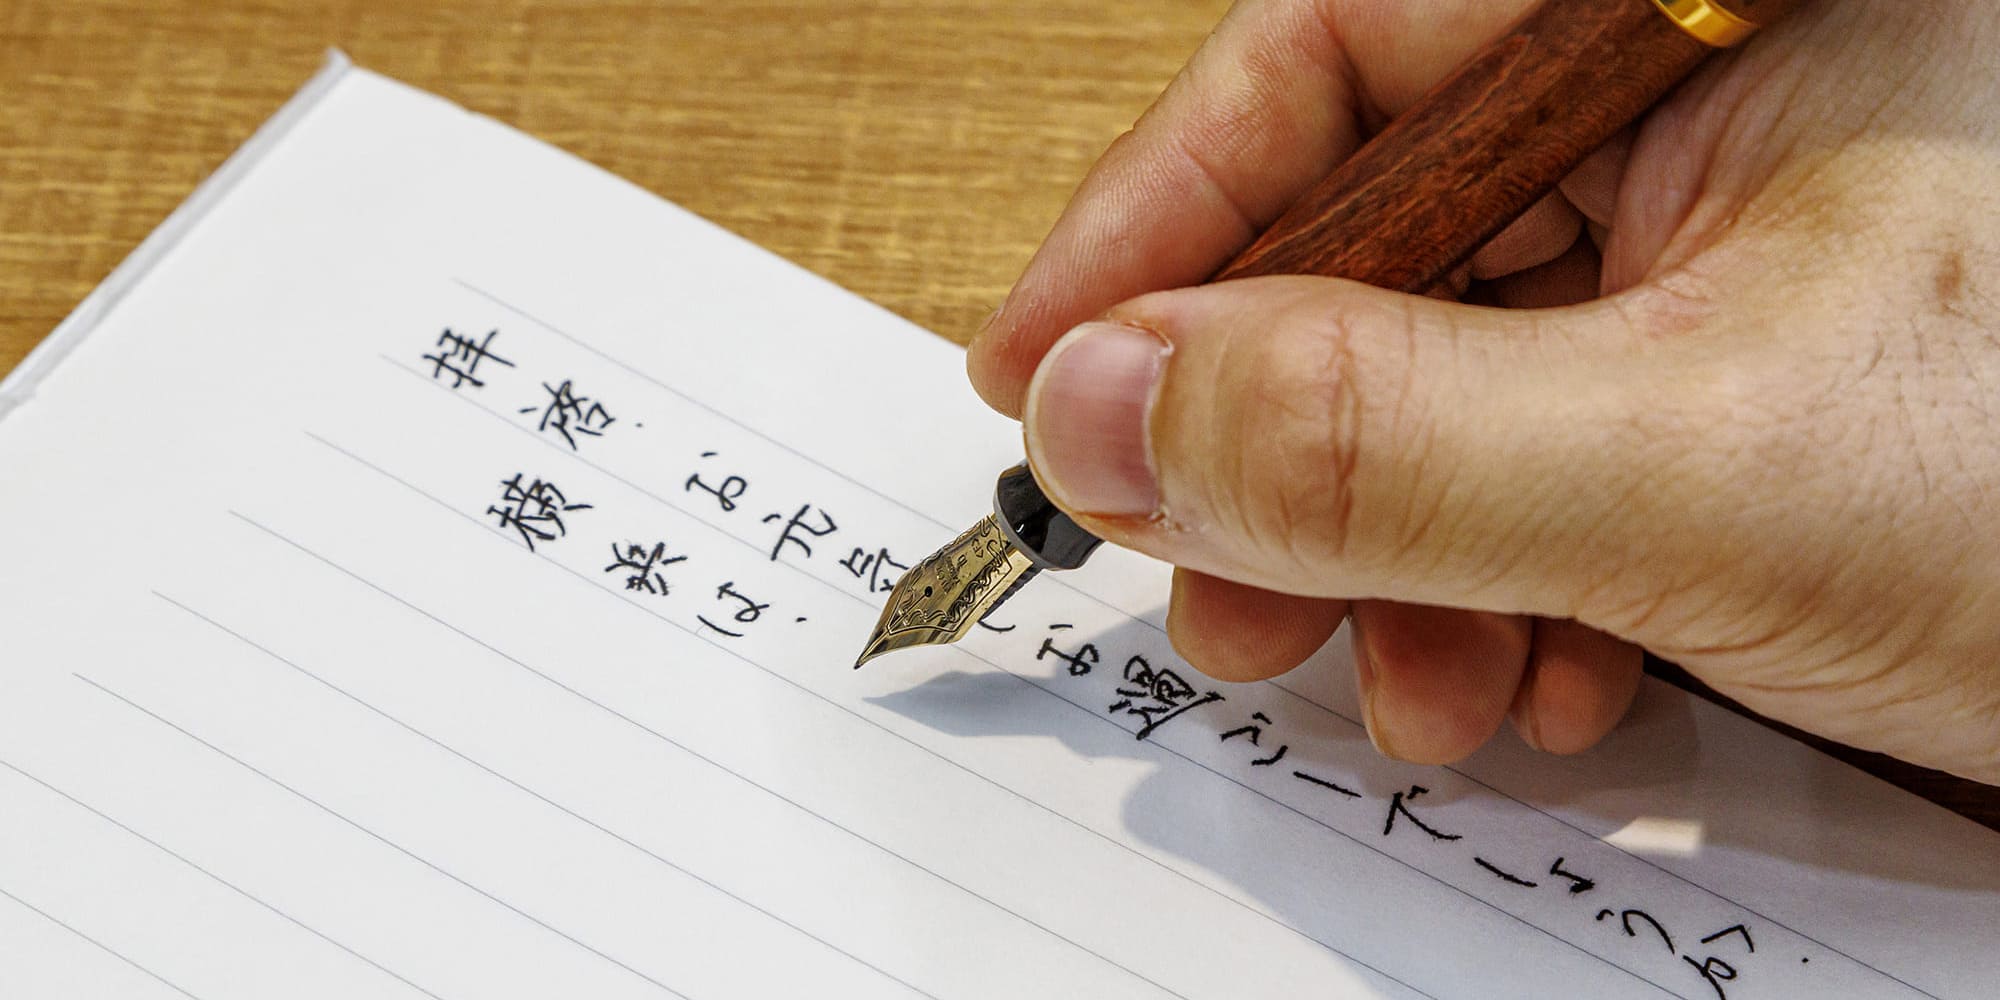 拝啓、お元気 お過ごしでしょうか。
横浜は、